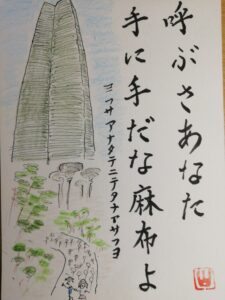 呼ぶさあなた
手に手だな麻布よ
ヨフサアナタテニテタナアサフヨ